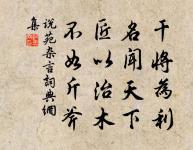 干將為利
名聞天下
匠以治木
不如斤斧
說苑杂言詞典網
集